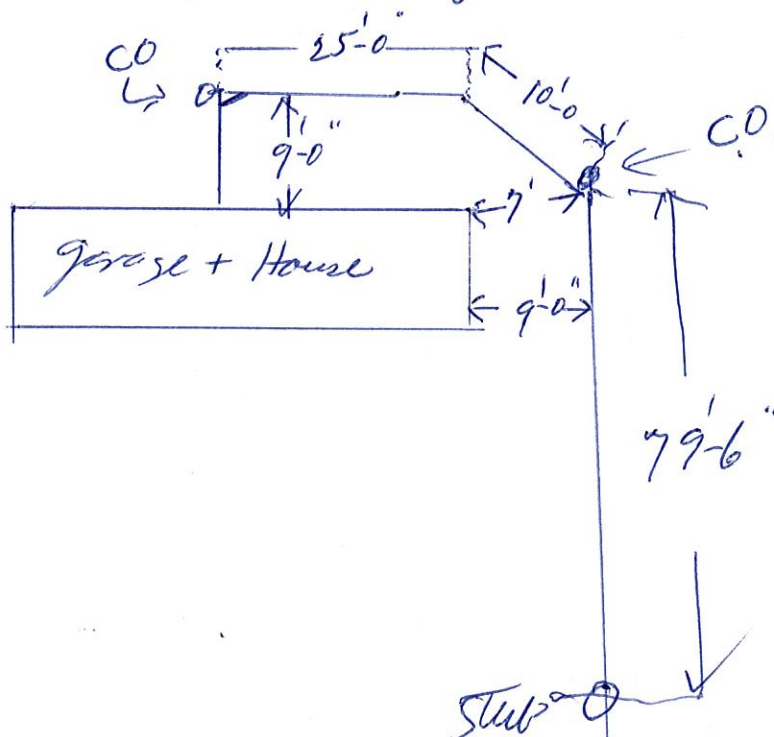 25'-0"
CO
10'-0
C.O.
9'-0"
7'
garage + House
9'-0"
79'-6"
Stub